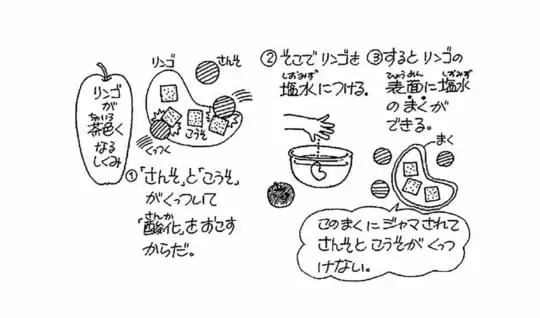 リンゴ
が
ちゃいろ
茶色く
なる
しくみ
リンゴ
さんそ
こうそ
くっつく
①「さんそ」と「こうそ」
がくっついて
さんか
「酸化」をおこす
からだ。
②そこでリンゴを
しおみず
塩水につける。
③するとリンゴの
ひょうめん しおみず
表面に塩水
のまくが
できる。
まく
このまくにジャマされて
さんそとこうそがくっつ
けない。